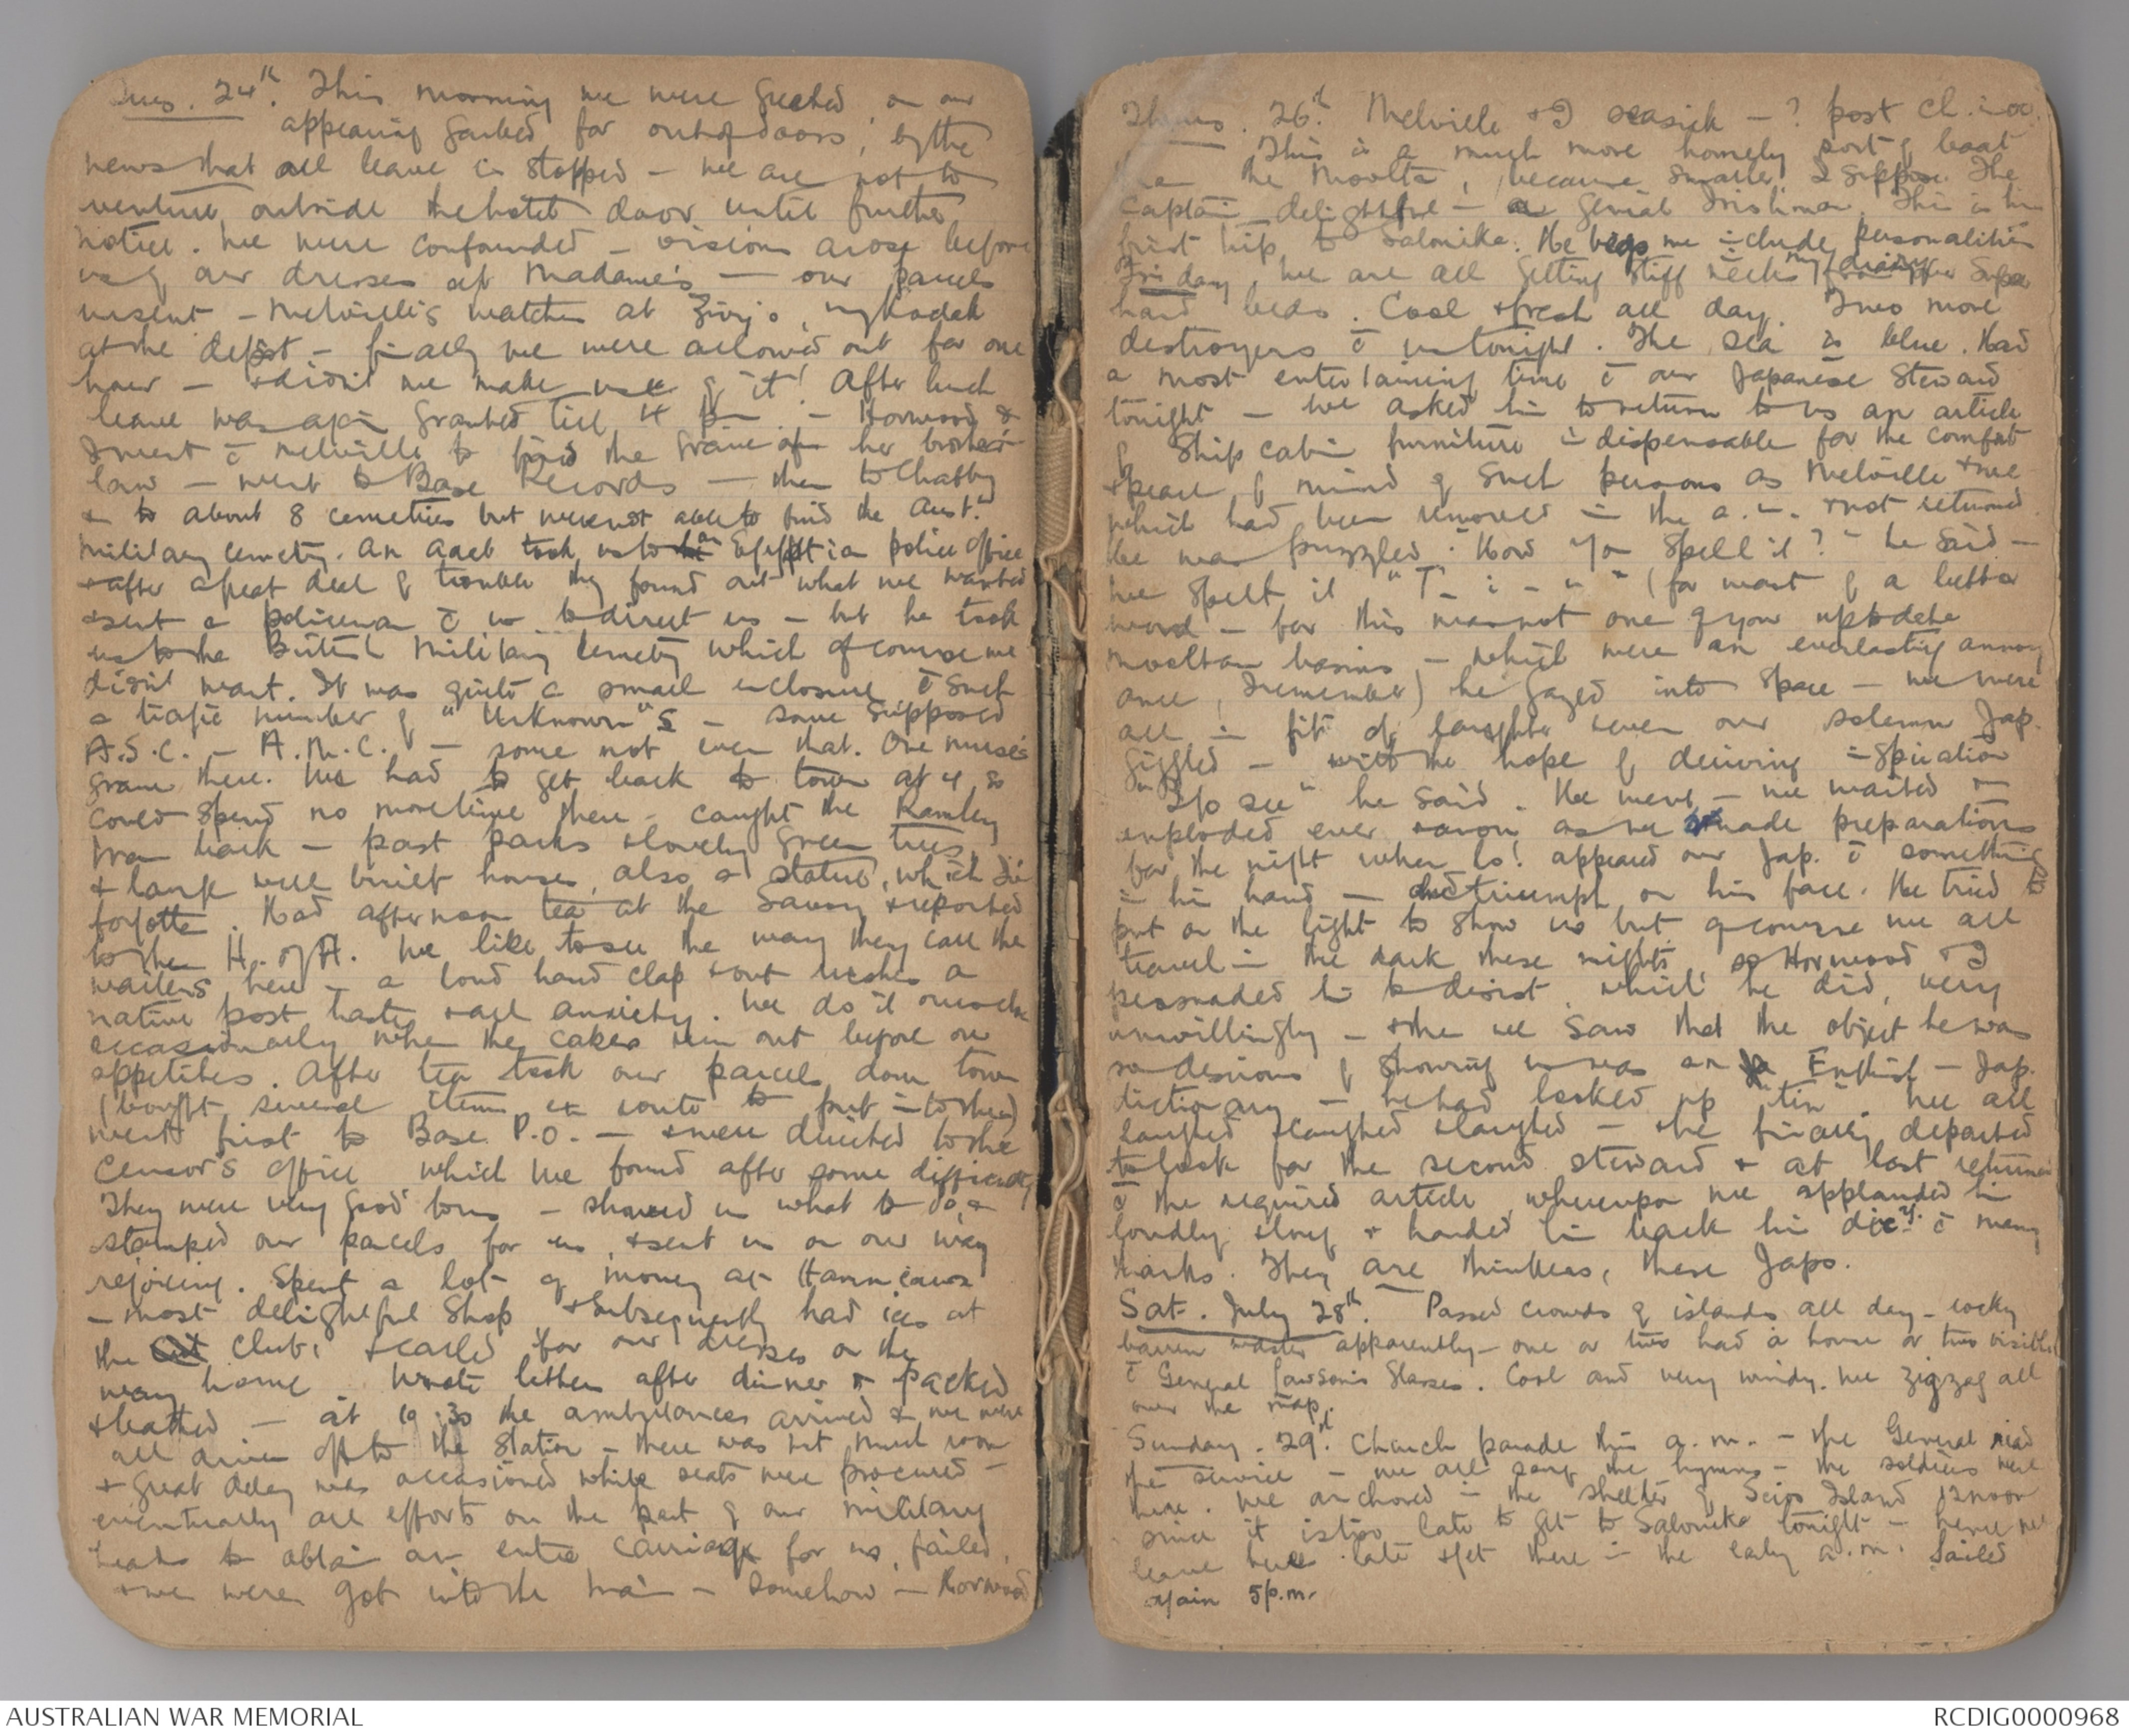 Tues. 24th. This morning we were greeted on our
appearing garbed for out of doors, by the
news that all leave is stopped - we are not to
venture outside the hotel door until further
notice. We were confounded - visions arose before
us of our dresses at Madame's - our parcels
unsent - Melville's watch at Zivy's, my Kodak
at the depot - finally we were allowed out for one
hour - & didn't we make use of it! After lunch
leave was again granted till 4 pm. - Horwood &
I went c̄ Melville to find the grave of her brother in
law - went to Base Records - then to Chatby
& to about 8 cemeteries but were not able to find the Aust.
military cemetry. An Arab took us to an Egyptian police office
& after a great deal of trouble they found out what we wanted
& sent a policeman c̄ us to direct us - but he took
us to the British Military Cemetry which of course we
didn't want. It was quite a small enclosure c̄ such
a tragic number of "Unknown"s - some supposed
A.S.C. - A.M.C. - some not even that. One nurse's
grave there. We had to get back to town at 4 so
could spend no more time there - caught the Ramley
tram back - past parks & lovely green trees
& large well built houses, also a statue, which I've
forgotten. Had afternoon tea at the Savoy & reported
to the H. of A. We like to see the way they call the
waiters here - a loud hand clap & out rushes a
native post haste & all anxiety. We do it ourselves
occasionally when the cakes run out before our
appetites. After tea took our parcels down town
(bought several items en route to put into them)
went first to Base P.O. - & were directed to the
Censor's office which we found after some difficulty
They were very good to us - showed us what to do, &
stamped our parcels for us, & sent us on our way
rejoicing. Spent a lot of money at
- most delightful shop & subsequently had ices at
the Club, & called for our dresses on the
way home. Wrote letters after dinner & packed
& bathed - at 10.30 the ambulances arrived & we were
all driven off to the station - there was not much room
& great delay was occasioned while seats were procured -
eventually all efforts on the part of our military
heads to obtain an entire carriage for us, failed,
& we were got into the train - somehow - Horwood
Thurs. 26th. Melville & I seasick - ? post
This is a much more homely sort of boat
than the Mooltan, because smaller I suppose. The
Captain delightful - a genial Irishman. This is his
first trip to Salonika. He begs me include personalities
my diary
Friday, We are all getting stiff necks from the super
hard beds. Cool & fresh all day. Two more
destroyers c̄ us tonight. The sea is blue. Had
a most entertaining time c̄ our Japanese Steward
tonight - we asked him to return to us an article
of ship cabin furniture indispensable for the comfort
& peace of mind of such persons as Melville & me
which had been removed in the a.m. & not returned.
He was puzzled. "How you spell it?" he said -
we spelt it "T - i - n" (for want of a better
word - for this was not one of your up to date
Mooltan basins - which were an everlasting annoy
ance, I remember) he gazed into space - we were
all in fits of laughter & even our solemn Jap.
giggled - with the hope of deriving inspiration
"I go see" he said. He went, - we waited &
exploded ever & anon as we made preparations
for the night when lo! appeared our Jap. c̄ something
in his hand - and triumph on his face. He tried to
put on the light to show us but of course we all
travel in the dark these nights, so Horwood & I
persuaded him to desist, which he did, very
unwillingly - & then we saw that the object he was
so desirous of showing us was an English - Jap.
dictionary - he had looked up "tin". We all
laughed & laughed & laughed - & he finally departed
to look for the second steward & at last returned
c̄ the required article, whereupon we applauded him
loudly & long & handed him back his dicy. c̄ many
thanks. They are thinkers, these Japs.
Sat. July 28th. Passed crowds of islands all day - rocky
barren wastes apparently - one or two had a house or two visible
c̄ General Lawson's glasses. Cool and very windy. We zigzag all
over the map.
Sunday. 29th. Church parade this a.m. - the General read
the service - we all sang the hymns - the soldiers were
there. We anchored in the shelter of Scios Island noon
since it is too late to get to Salonika tonight - hence we
leave here late & get there in the early a.m. Sailed
again 5 p.m.
AUSTRALIAN WAR MEMORIAL
RCDIG0000968